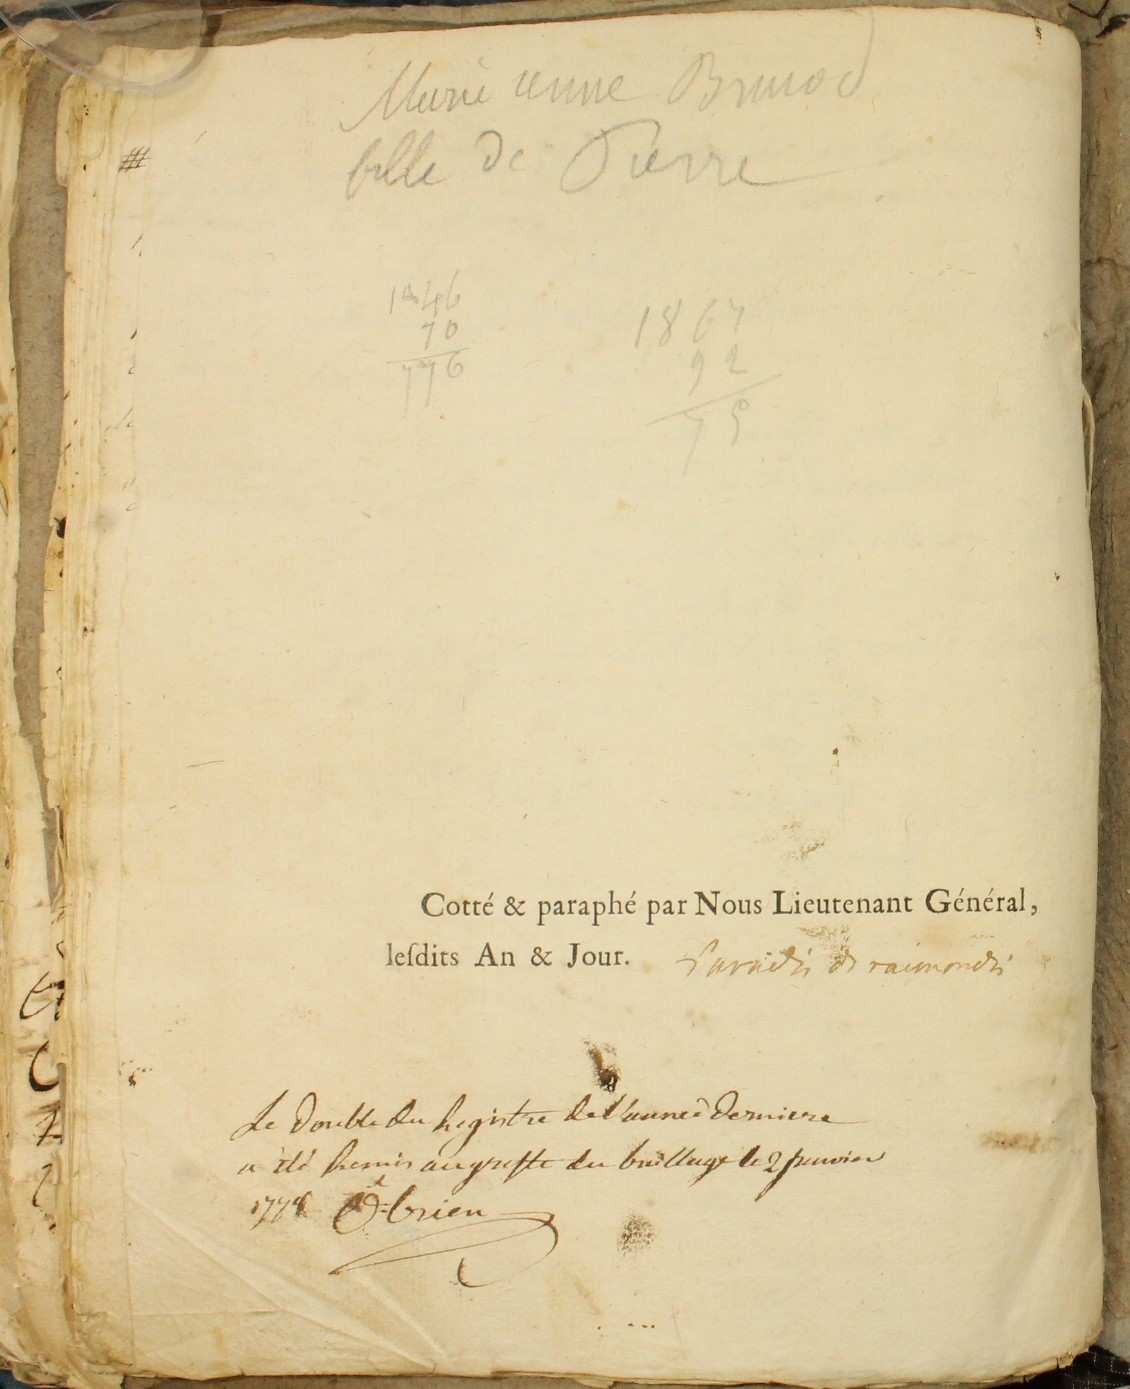 Marie anne Brunod
fille de Pierre
1846
70
776
1867
92
75
Cotté & paraphé par Nous Lieutenant Général,
leſdits An & Jour. Paradis de raimondis
Le double du Registre de l'année derniere
a été Remis au greffe du bailliage le 2 janvier
1778 O=brien